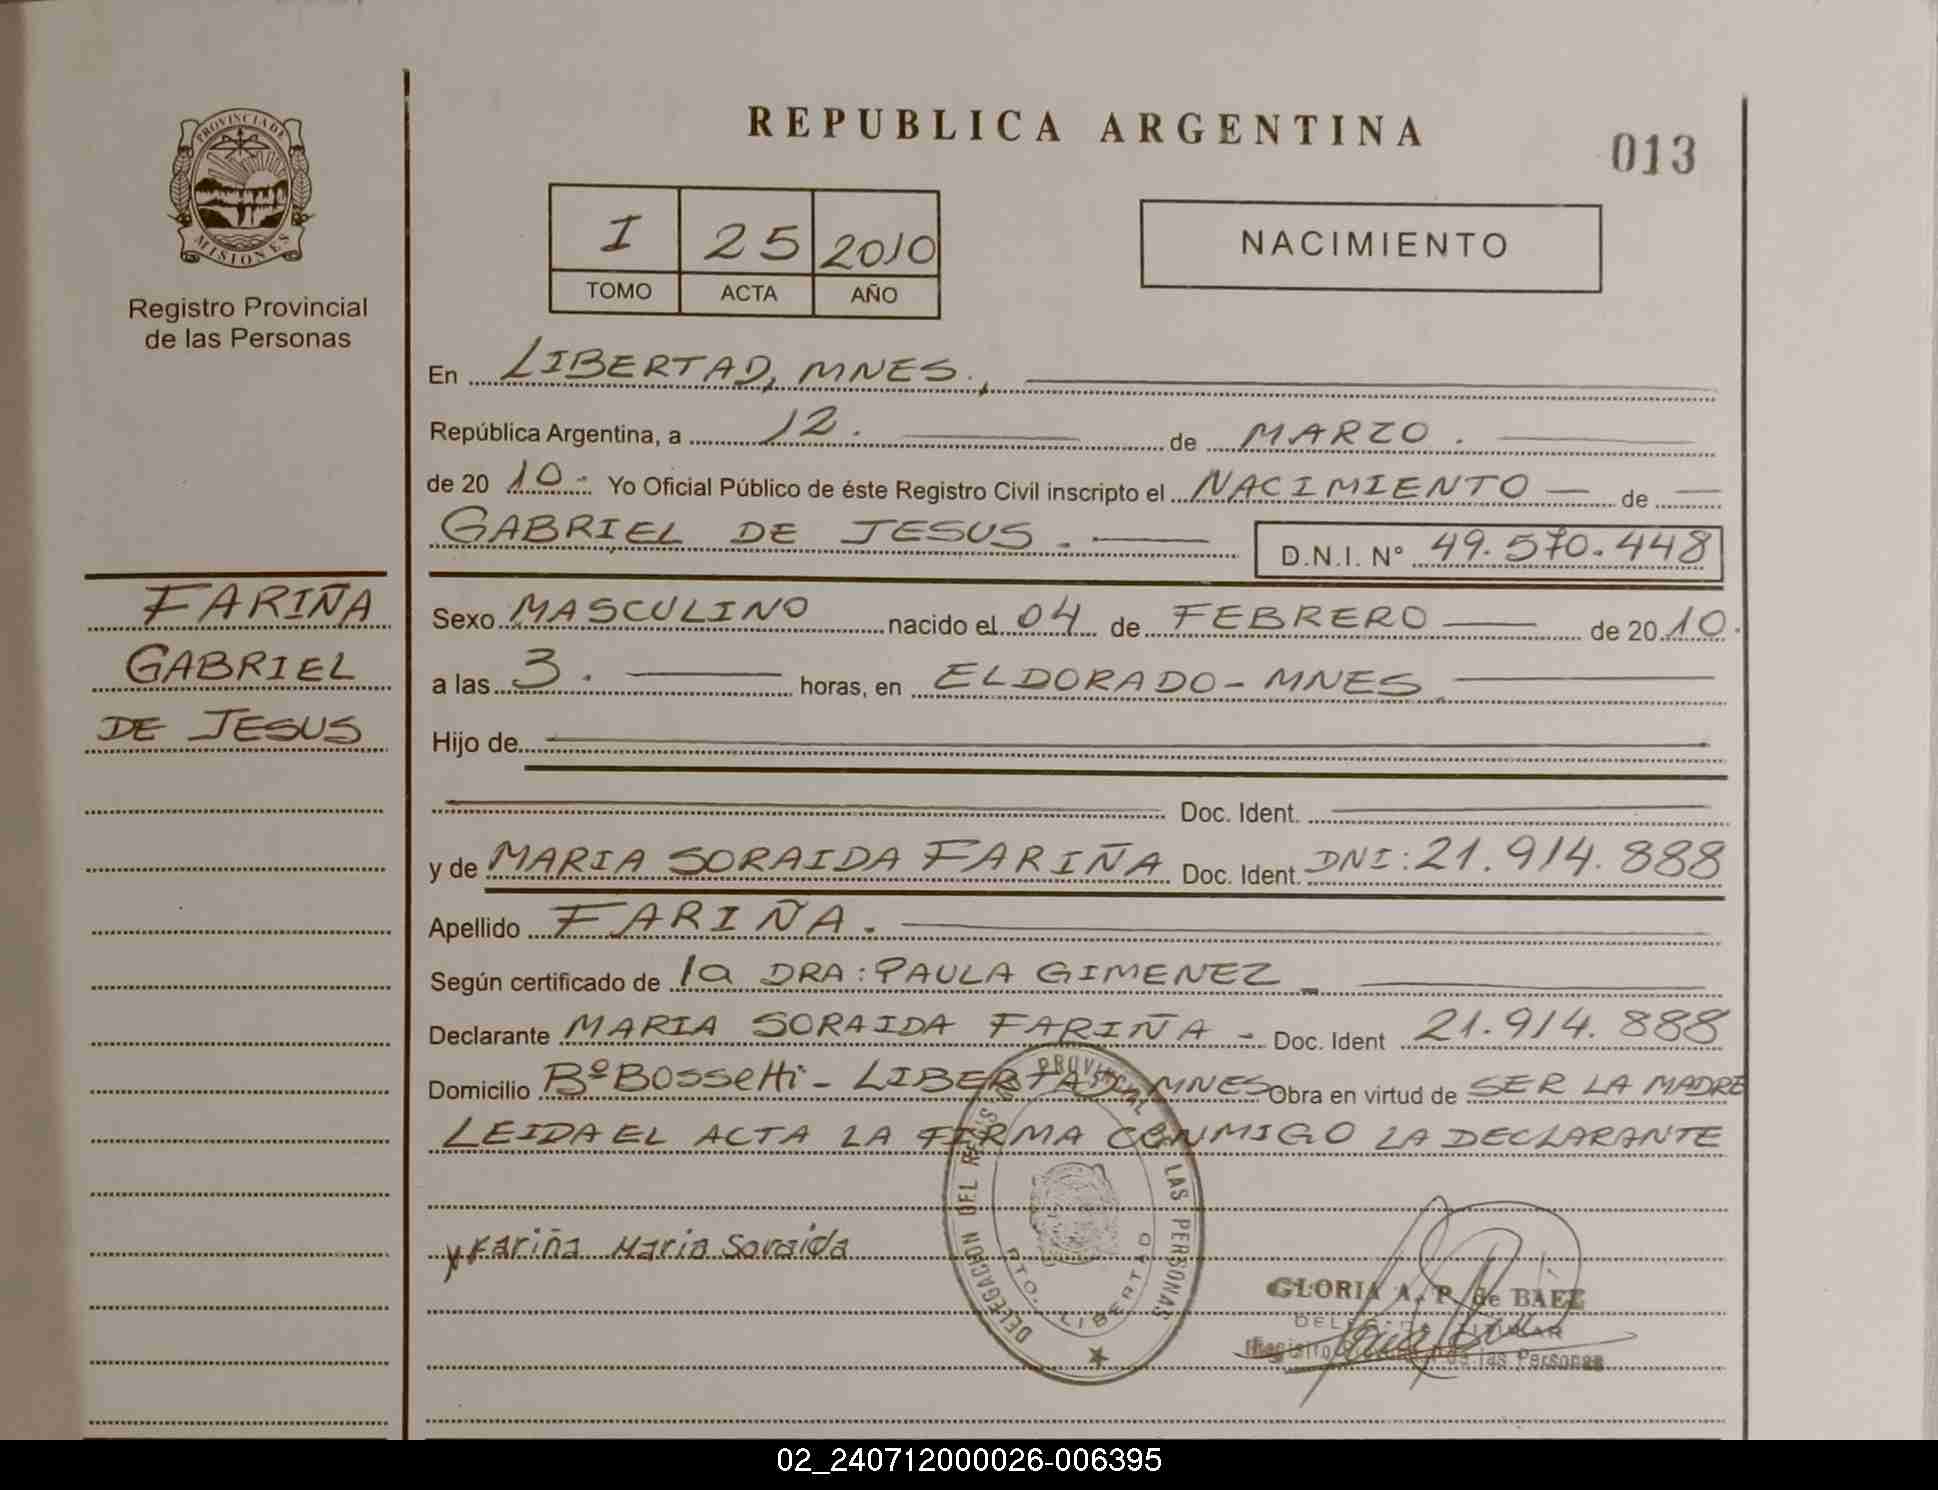 PROVINCIA DE
MISIONES
Registro Provincial
de las Personas
REPUBLICA ARGENTINA
013
I 25 2010
TOMO ACTA AÑO
NACIMIENTO
En LIBERTAD, MNES.,
República Argentina, a 12. de MARZO.
de 20 10.- Yo Oficial Público de éste Registro Civil inscripto el NACIMIENTO — de —
GABRIEL DE JESUS. — D.N.I. N° 49.570.448
FARIÑA
GABRIEL
DE JESUS
Sexo MASCULINO nacido el 04 de FEBRERO — de 20 10.
a las 3. — horas, en ELDORADO - MNES.
Hijo de
Doc. Ident.
y de MARIA SORAIDA FARIÑA Doc. Ident. DNI: 21.914.888
Apellido FARIÑA.
Según certificado de la DRA: PAULA GIMENEZ
Declarante MARIA SORAIDA FARIÑA - Doc. Ident 21.914.888
Domicilio Bº BOSSEtti - LIBERTAD MNES Obra en virtud de SER LA MADRE
LEIDA EL ACTA LA FIRMA CONMIGO LA DECLARANTE
Fariña Maria Soraida
DELEGACION DEL REGISTRO PROVINCIAL LAS PERSONAS
PTO. LIBERTAD
GLORIA A. P. de BAEZ
TITULAR
Registro de las Personas
02_240712000026-006395